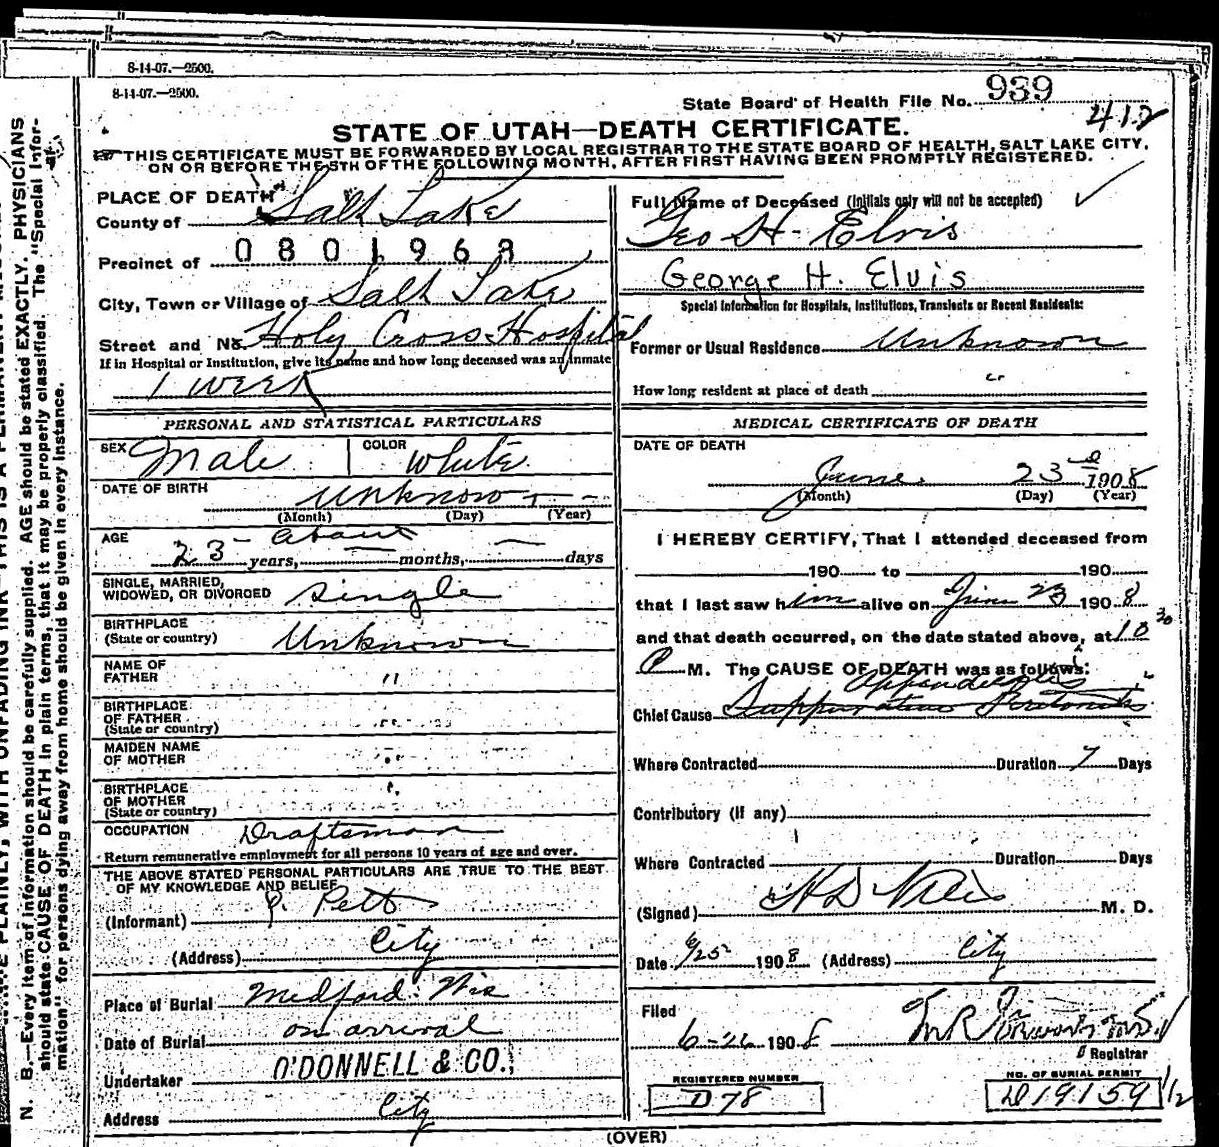 8-14-07.—2500.
8-14-07.—2500.
State Board of Health File No. 939
412
STATE OF UTAH—DEATH CERTIFICATE.
THIS CERTIFICATE MUST BE FORWARDED BY LOCAL REGISTRAR TO THE STATE BOARD OF HEALTH, SALT LAKE CITY,
ON OR BEFORE THE 5TH OF THE FOLLOWING MONTH, AFTER FIRST HAVING BEEN PROMPTLY REGISTERED.
PLACE OF DEATH
County of Salt Lake
Precinct of 0801963
City, Town or Village of Salt Lake
Street and No. Holy Cross Hospital
If in Hospital or Institution, give its name and how long deceased was an inmate
1 week
PERSONAL AND STATISTICAL PARTICULARS
SEX Male COLOR White
DATE OF BIRTH Unknown
(Month) (Day) (Year)
AGE about
23 years, — months, — days
SINGLE, MARRIED,
WIDOWED, OR DIVORCED Single
BIRTHPLACE
(State or country) Unknown
NAME OF
FATHER "
BIRTHPLACE
OF FATHER
(State or country)
MAIDEN NAME
OF MOTHER "
BIRTHPLACE
OF MOTHER
(State or country) "
OCCUPATION Draftsman
Return remunerative employment for all persons 10 years of age and over.
THE ABOVE STATED PERSONAL PARTICULARS ARE TRUE TO THE BEST
OF MY KNOWLEDGE AND BELIEF
(Informant) Pett
(Address) City
Place of Burial Medford Wis
Date of Burial on arrival
Undertaker O'DONNELL & CO.,
Address City
Full Name of Deceased (Initials only will not be accepted)
Geo H. Elvis
George H. Elvis
Special Information for Hospitals, Institutions, Transients or Recent Residents:
Former or Usual Residence Unknown
How long resident at place of death "
MEDICAL CERTIFICATE OF DEATH
DATE OF DEATH
June 23d 1908
(Month) (Day) (Year)
I HEREBY CERTIFY, That I attended deceased from
190 to 190
that I last saw him alive on June 23 1908
and that death occurred, on the date stated above, at 10 30
P M. The CAUSE OF DEATH was as follows:
Appendicitis
Chief Cause Suppurative Peritonitis
Where Contracted Duration 7 Days
Contributory (if any)
Where Contracted Duration Days
(Signed) H D Niles M. D.
Date 6/25 1908 (Address) City
Filed
6-26 1908
Registrar
REGISTERED NUMBER
D 78
NO. OF BURIAL PERMIT
D 19159 1/2
(OVER)
N. B.—Every item of information should be carefully supplied. AGE should be stated EXACTLY. PHYSICIANS
should state CAUSE OF DEATH in plain terms, that it may be properly classified. The "Special Infor-
mation" for persons dying away from home should be given in every instance.